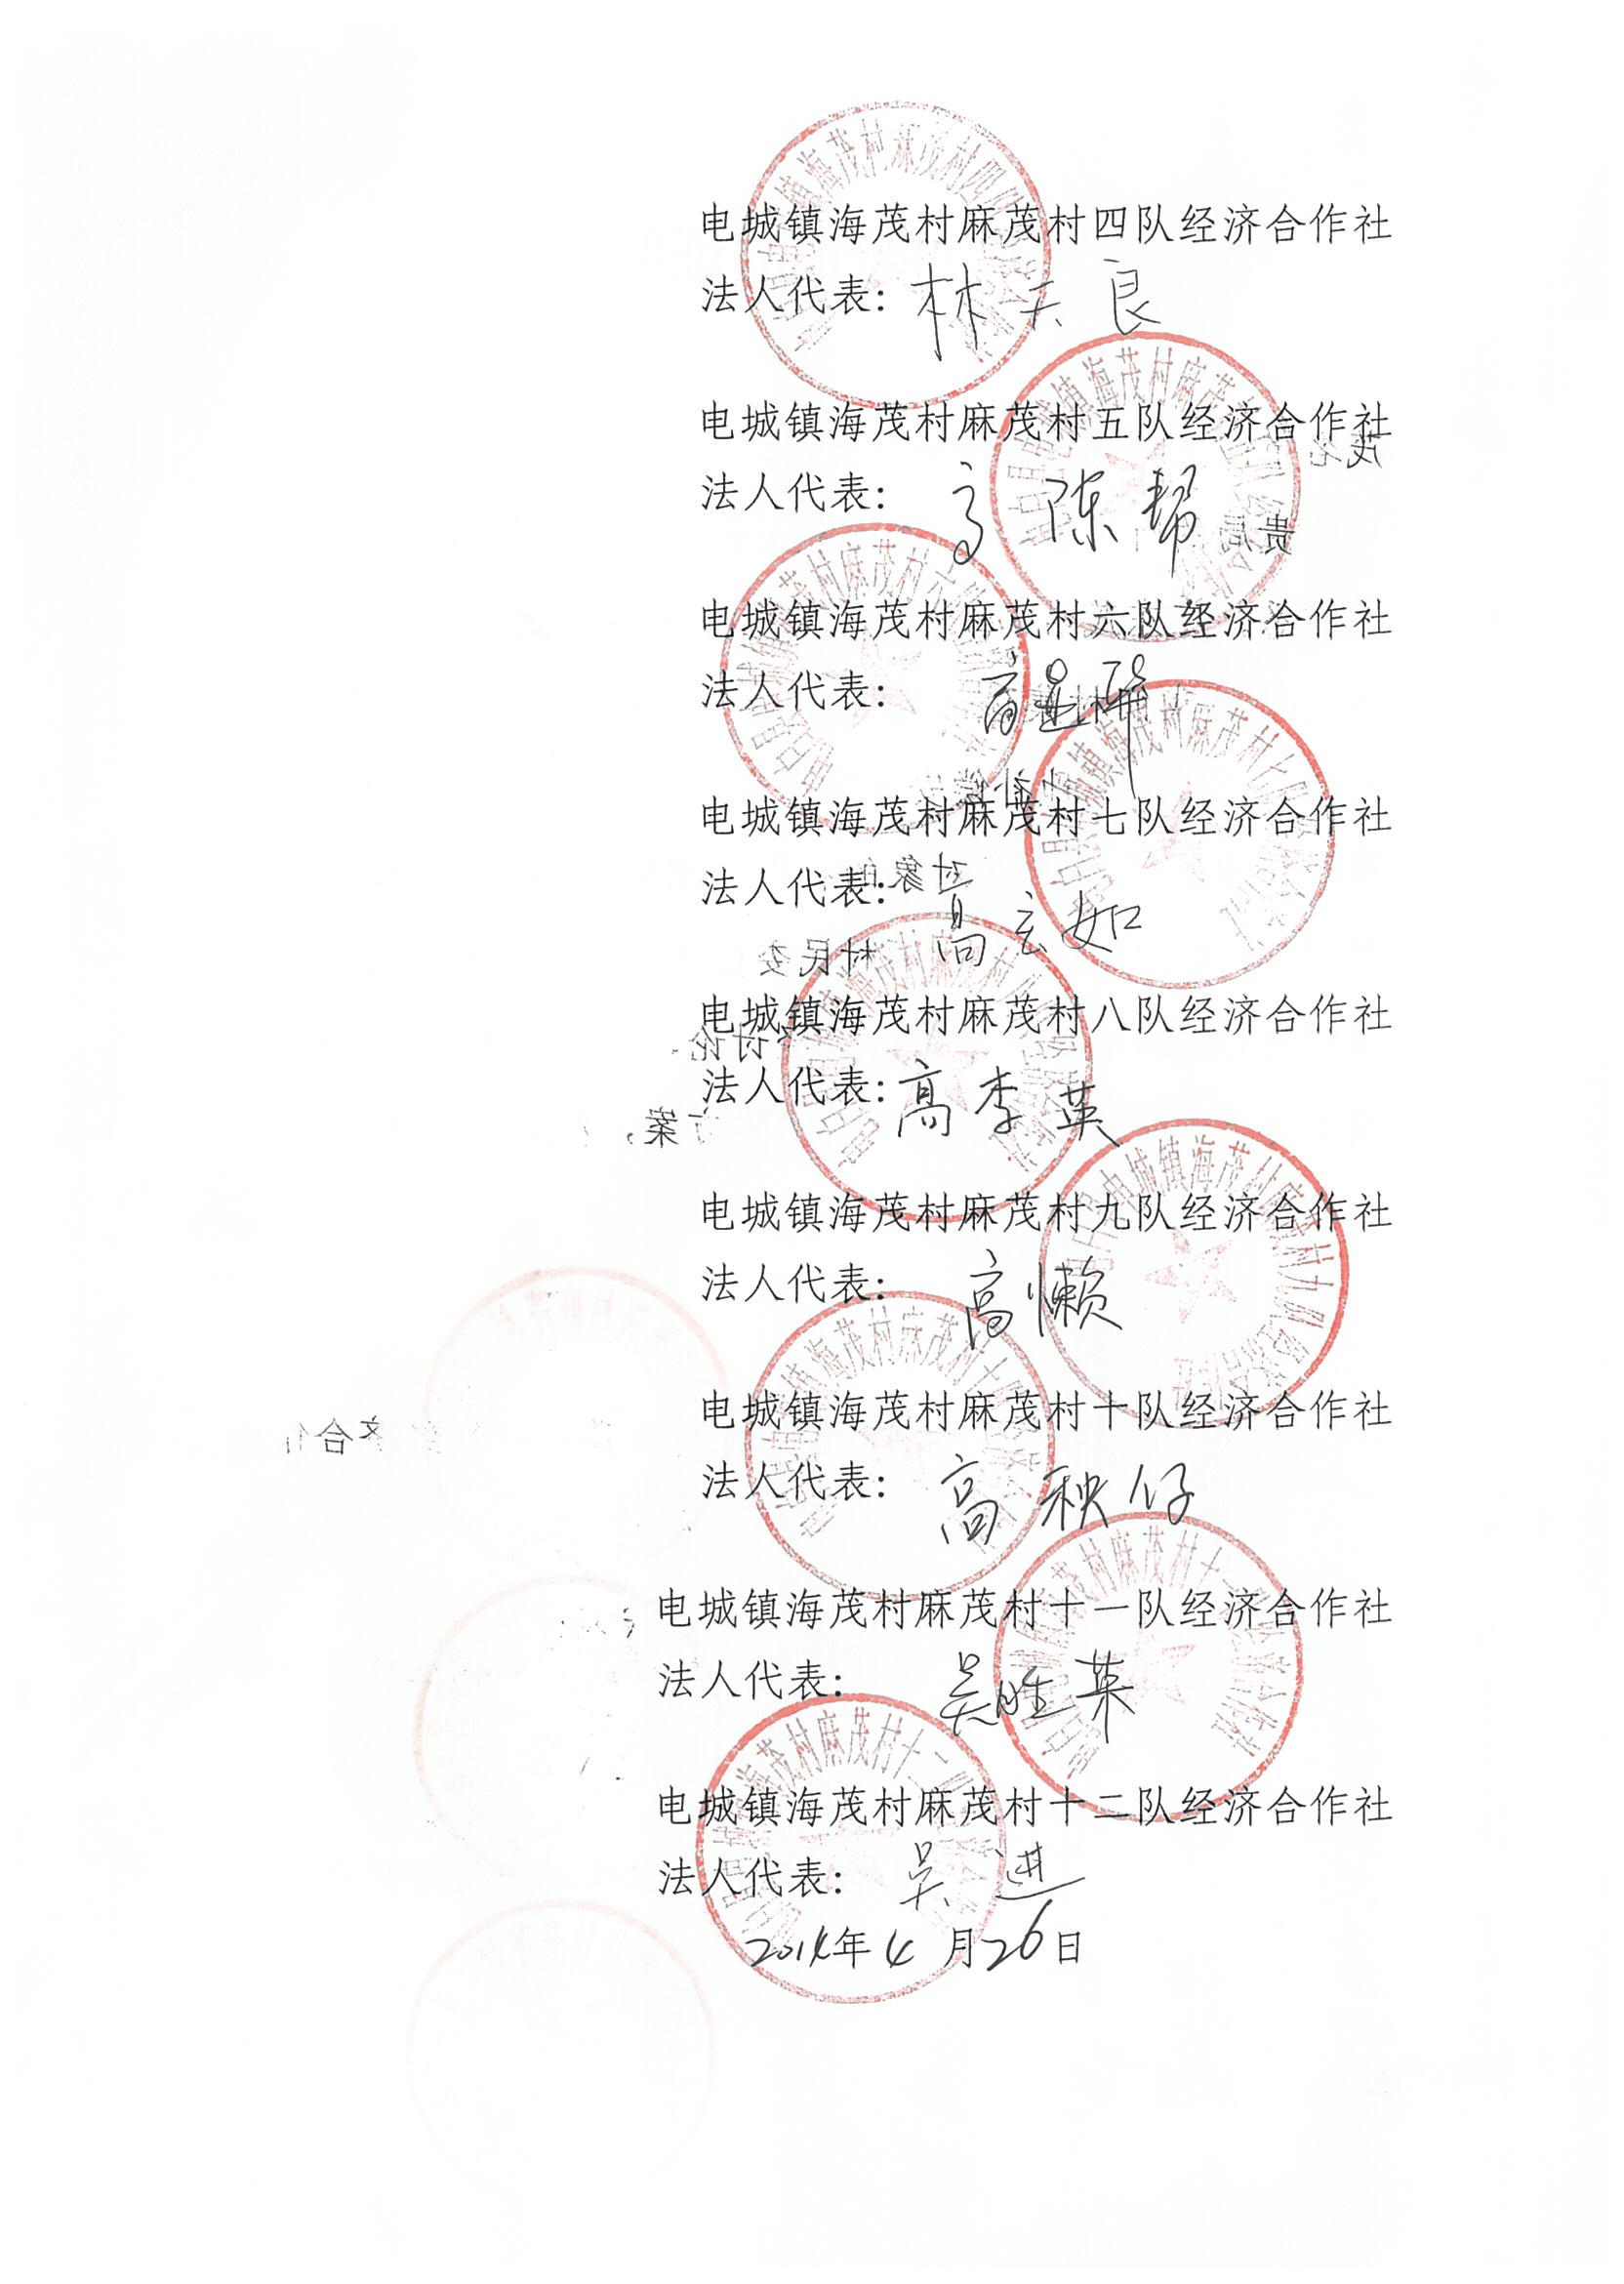 电城镇海茂村麻茂村四队经济合作社
法人代表：林天良
电城镇海茂村麻茂村五队经济合作社
法人代表：高陈帮
电城镇海茂村麻茂村六队经济合作社
法人代表：高
电城镇海茂村麻茂村七队经济合作社
法人代表：高玄如
电城镇海茂村麻茂村八队经济合作社
法人代表：高李英
电城镇海茂村麻茂村九队经济合作社
法人代表：高懒
电城镇海茂村麻茂村十队经济合作社
法人代表：高秧仔
电城镇海茂村麻茂村十一队经济合作社
法人代表：吴胜英
电城镇海茂村麻茂村十二队经济合作社
法人代表：吴进
2014年4月26日